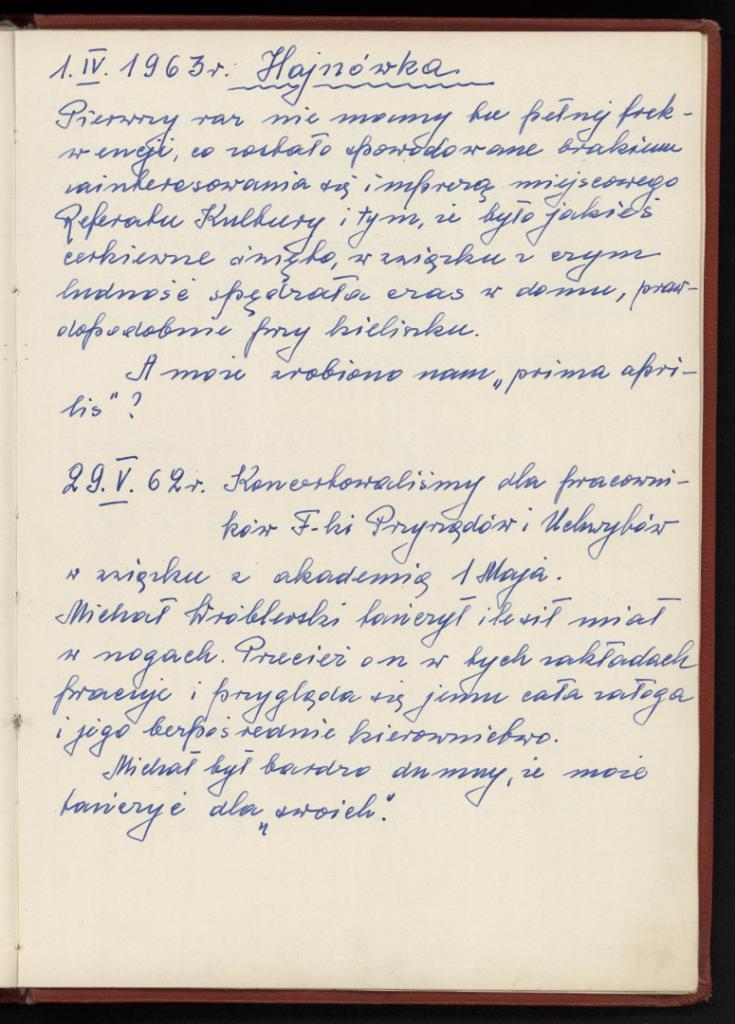 1. IV. 1963 r. Hajnówka
Pierwszy raz nie mamy tu pełnej frek-
wencji, co zostało spowodowane brakiem
zainteresowania się imprezą miejscowego
Referatu Kultury i tym, że było jakieś
cerkiewne święto, w związku z czym
ludność spędzała czas w domu, praw-
dopodobnie przy kieliszku.
A może zrobiono nam „prima apri-
lis" ?
29. V. 62 r. Koncertowaliśmy dla pracowni-
ków F-ki Przyrządów i Uchwytów
w związku z akademią 1 Maja.
Michał Wróblewski tańczył ile sił miał
w nogach. Przecież on w tych zakładach
pracuje i przygląda się jemu cała załoga
i jego bezpośrednie kierownictwo.
Michał był bardzo dumny, że może
tańczyć dla „swoich".